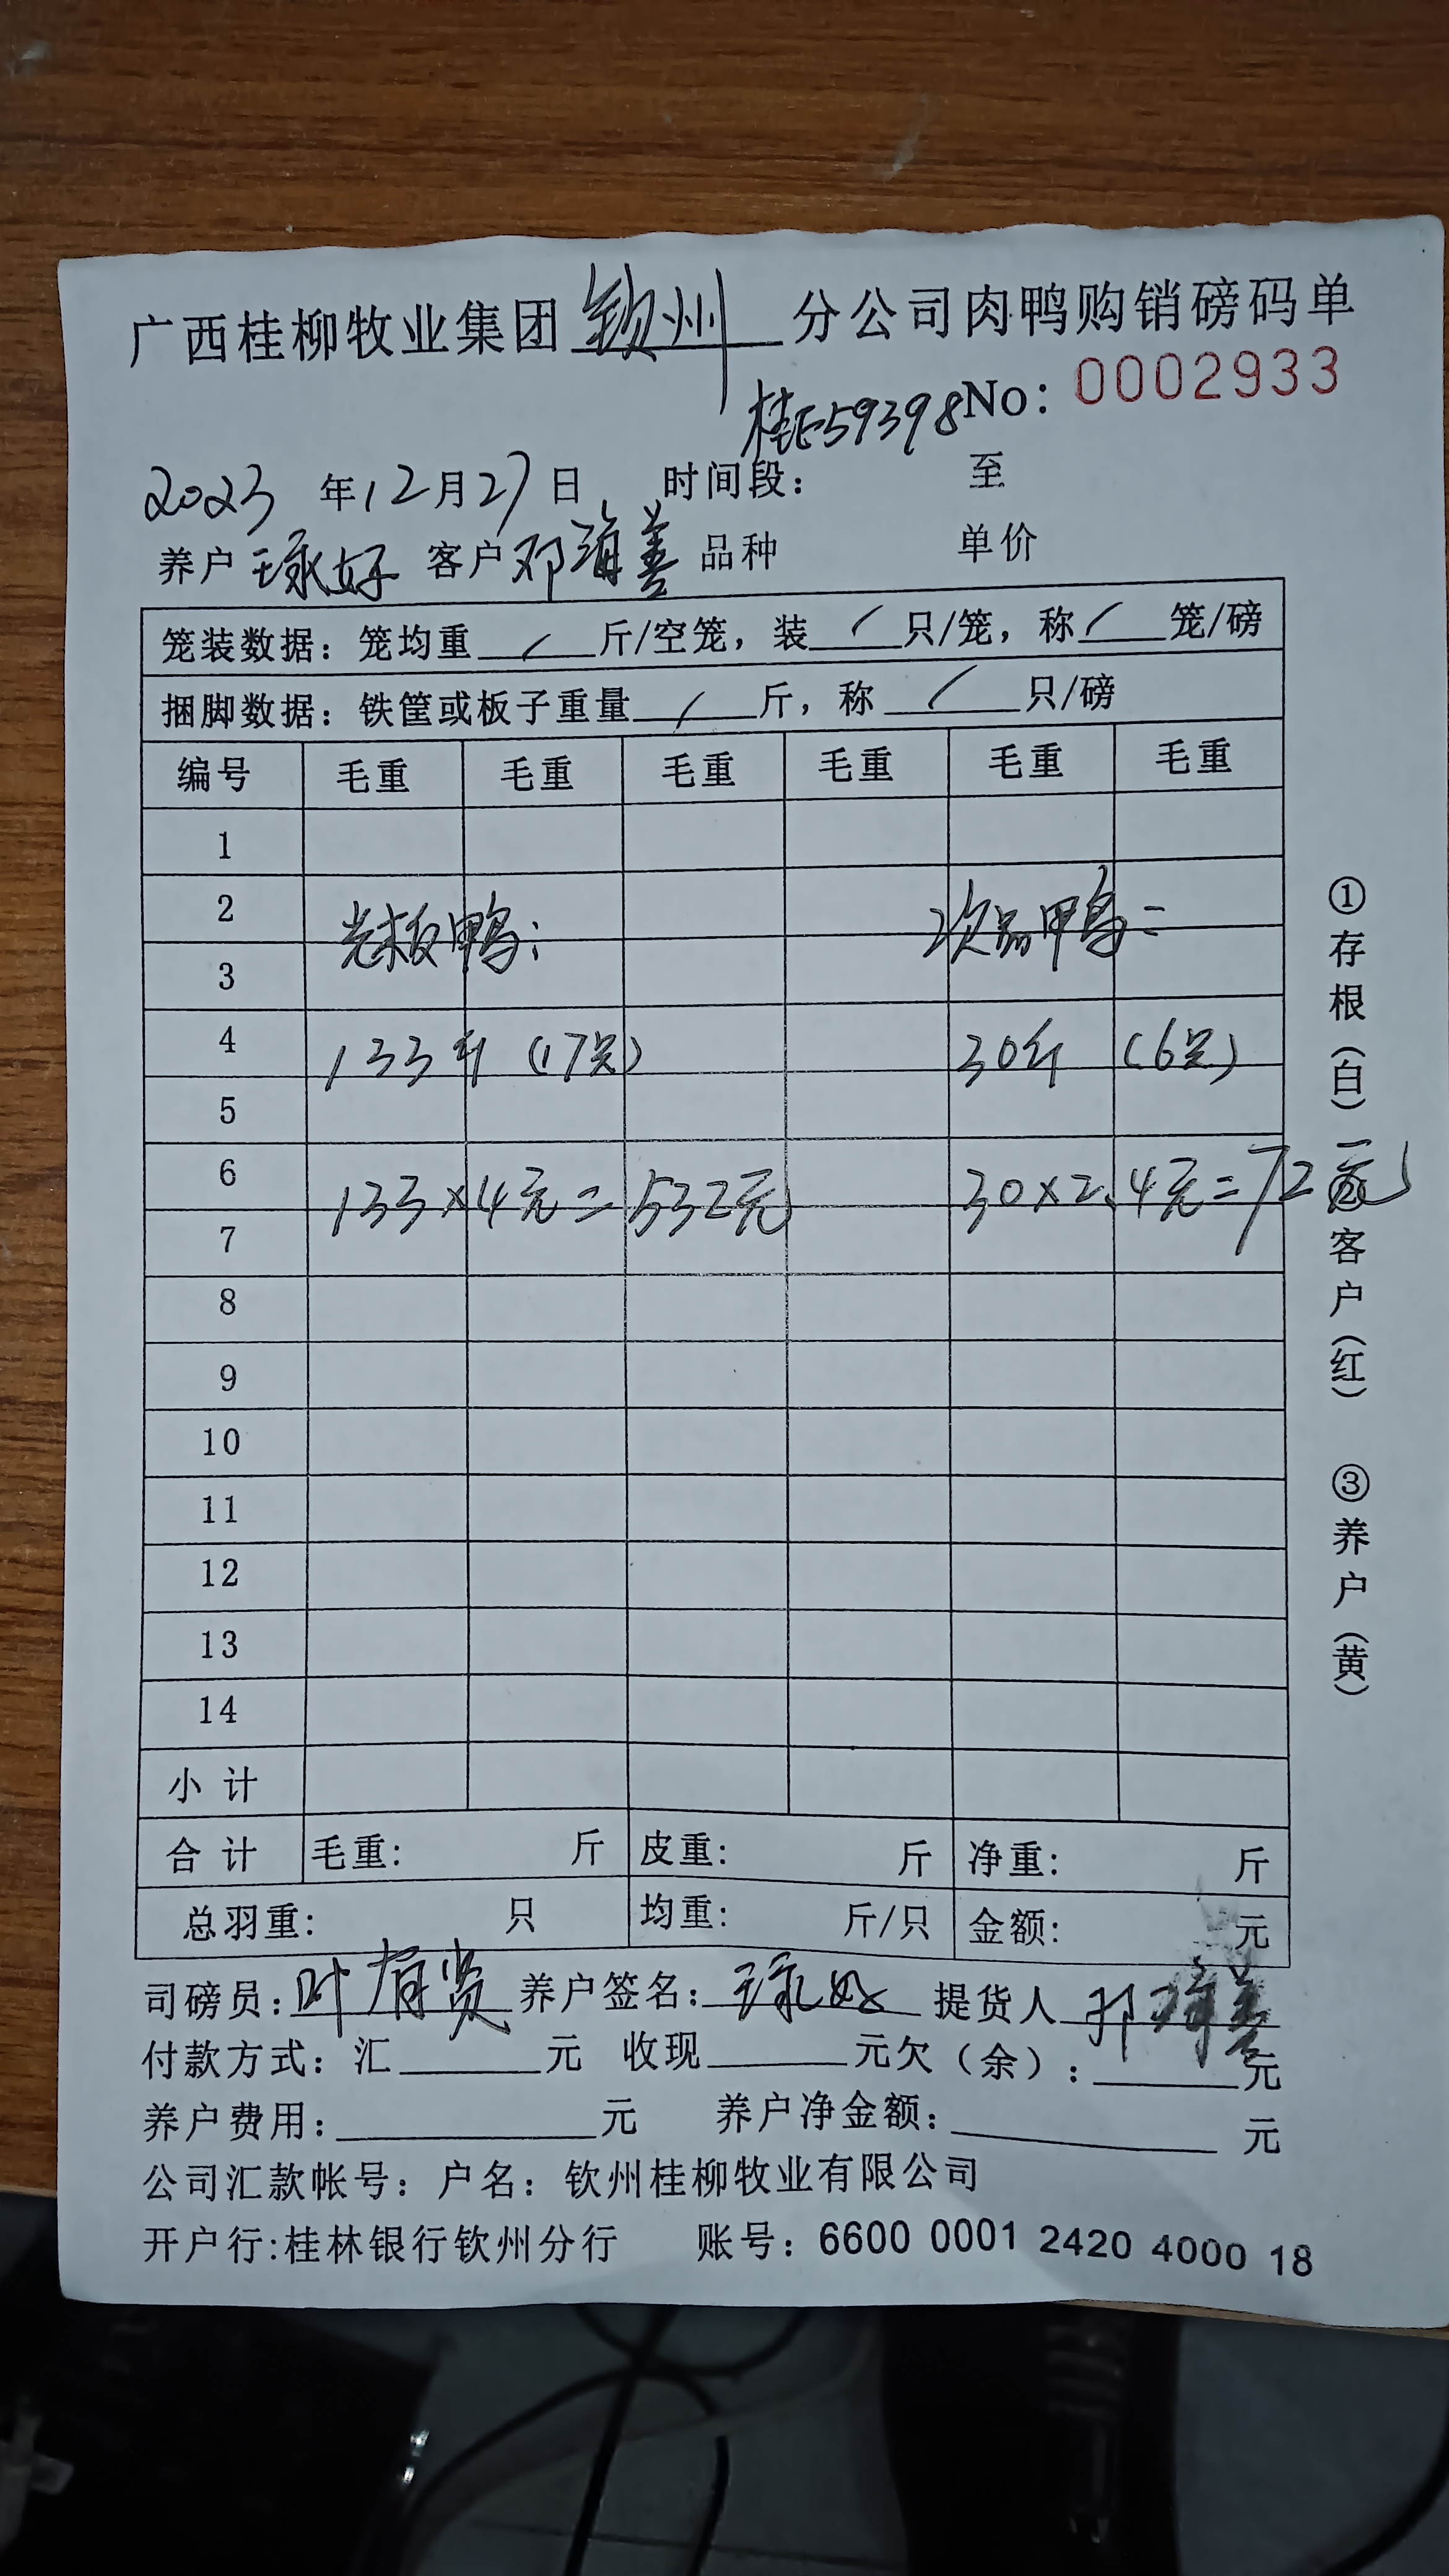 广西桂柳牧业集团 钦州 分公司肉鸭购销磅码单
桂E59398 No: 0002933
2023 年 12 月 27 日 时间段: 至
养户 客户 邓海善 品种 单价
笼装数据: 笼均重 / 斤/空笼, 装 / 只/笼, 称 / 笼/磅
捆脚数据: 铁筐或板子重量 / 斤, 称 / 只/磅
编号 毛重 毛重 毛重 毛重 毛重 毛重
1
2
光板鸭: 次品鸭:
3
4 133斤 (17只) 30斤 (6只)
5
6
133×4元=532元 30×2.4元=72元
7
8
9
10
11
12
13
14
小 计
合 计 毛重: 斤 皮重: 斤 净重: 斤
总羽重: 只 均重: 斤/只 金额: 元
司磅员: 叶有贤 养户签名: 提货人 邓海善
付款方式: 汇 元 收现 元欠(余): 元
养户费用: 元 养户净金额: 元
公司汇款帐号: 户名: 钦州桂柳牧业有限公司
开户行:桂林银行钦州分行 账号: 6600 0001 2420 4000 18
①存根(白) ②客户(红) ③养户(黄)